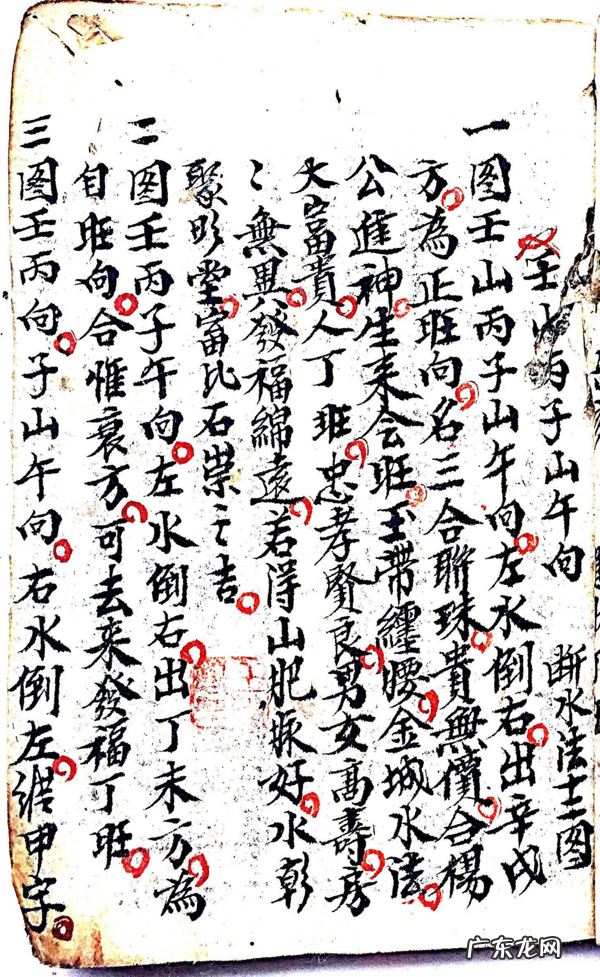 壬山丙子山午向 断水法十二图
一图壬山丙子山午向左水倒右出辛戌
方為正旺向名三合聯珠貴無價合楊
公進神生来会旺玉帶纏腰金城水法
大富貴人丁旺忠孝賢良男女高壽房
〻無異發福綿遠若得山肥水好水彰
聚明堂富比石崇之吉
二图壬丙子午向左水倒右出丁未方為
自旺向合惟衰方可去来發福丁旺
三图壬丙向子山午向右水倒左従甲字
广东龙网